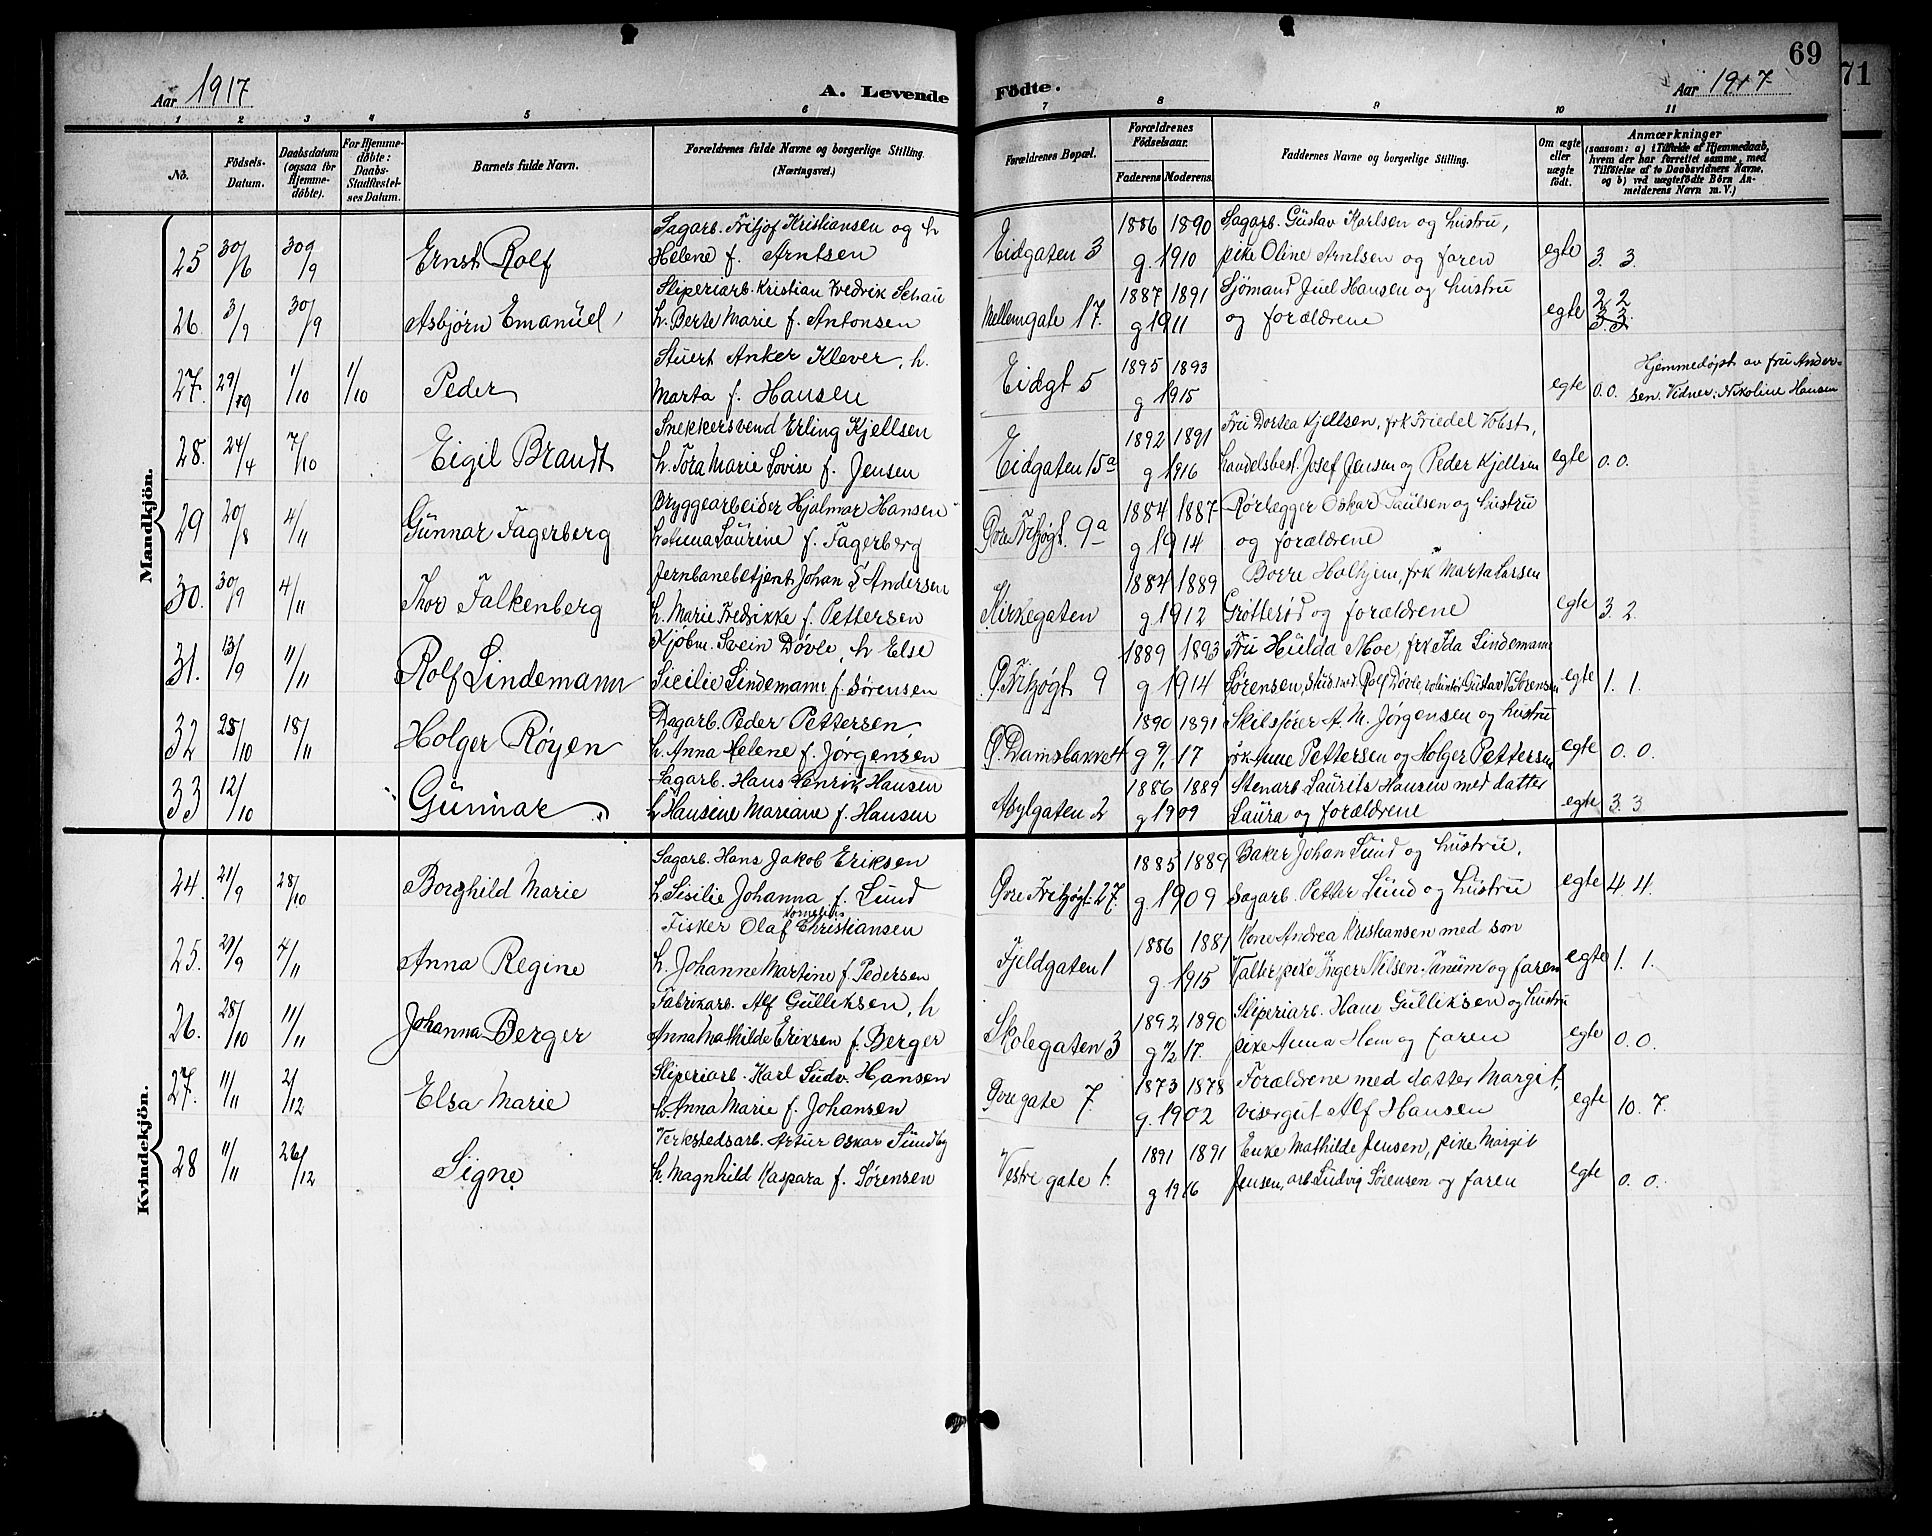 Aar 1917
A. Levende
Födte.
Aar 1917
69
71
1 2 3 4 5 6 7 8 9 10 11
No.
Födsels-Datum.
Daabsdatum (ogsaa for Hjemme-döbte).
For Hjemme-döbte: Daabs-Stadfæstel-ses Datum.
Barnets fulde Navn.
Forældrenes fulde Navne og borgerlige Stilling.
(Næringsvei.)
Forældrenes Bopæl.
Forældrenes Födselsaar.
Faderens Moderens.
Faddernes Navne og borgerlige Stilling.
Om ægte eller uægte födt.
Anmærkninger
(saasom: a) i Tilfælde af Hjemmedaab,
hvem der har forrettet samme, med
Tilföielse af to Daabsvidners Navne,
og b) ved uægtefödte Börn An-
melderens Navn m. V.)
Mandkjön.
Sagarb. Fritjof Kristiansen og h 1886 1890 Sagarb. Gustav Karlsen og hustru,
25 30/6 30/9 Ernst Rolf Helene f. Arntsen Eidgaten 3 g. 1910 pike Oline Arntsen og faren egte 3. 3.
Sliperiarb. Kristian Fredrik Schau 1887 1891 Sjömand Juel Hansen og hustru 2 2
26. 3/9 30/9 Asbjørn Emanuel h. Berte Marie f. Antonsen Mellemgate 17. g 1911 og forældrene egte 3 3.
Stuert Anker Klever, h. 1895 1893 Hjemmedøpt av fru Ander-
27. 29/9 1/10 1/10 Peder Marta f. Hansen Eidgt 5 g 1915 egte 0. 0. sen. Vidner: Nikoline Hansen
Snekkersvend Erling Kjellsen 1892 1891 Fru Dortea Kjellsen, frk Friedel Vobst,
28. 24/4 7/10 Eigil Brandt h. Tora Marie Lovise f. Jensen Eidgaten 15a g 1916 handelsbest. Josef Jensen og Peder Kjellsen egte 0. 0.
Bryggearbeider Hjalmar Hansen 1884 1887 Rørlegger Oskar Paulsen og hustru
29 20/8 4/11 Gunnar Fagerberg h. Anna Laurine f. Fagerberg Øvre Fritzøgt. 9a g 1914 og forældrene
Jernbanebetjent Johan E Andersen 1884 1889 Borre Holhjem, frk Marta Larsen
30. 30/9 4/11 Thor Falkenberg h. Marie Fredrikke f. Pettersen Kirkegaten g 1912 Grøtterød og forældrene egte 3 2.
Kjøbm. Svein Døvle, h Else 1889 1893 Fru Hulda Moe, frk Ida Lindemann
31. 13/9 11/11 Rolf Lindemann Sicilie Lindemann f. Sørensen Ø. Fritzøgt 9 g 1914 Sørensen, stud. med. Rolf Døvle, volontør Gustav V. Sørensen egte 1. 1.
Dagarb. Peder Pettersen, 1890 1891 Skibsfører A. M. Jørgensen og hustru
32 25/10 18/11 Holger Røyen h. Anna Helene f. Jørgensen Ø. Damsbakke 4 g 9/ 17 frk Anne Pettersen og Holger Pettersen egte 0. 0.
Sagarb. Hans Henrik Hansen 1886 1889 Stenarb. Laurits Hansen med datter
33 12/10 Gunnar h Hansine Mariane f. Hansen Asylgaten 2 g 1909 Laura og forældrene egte 3. 3
Kvindekjön.
Sagarb. Hans Jakob Eriksen 1885 1889 Baker Johan Lund og hustru,
24. 21/9 28/10 Borghild Marie h. Sisilie Johanna f. Lund Øvre Fritzøgt. 27. g. 1909 Sagarb. Petter Lund og hustru egte 4 4.
Fisker Olaf Kornelius Christiansen 1886 1881 Kone Andrea Kristiansen med søn
25. 29/9 4/11 Anna Regine h. Johanne Martine f. Pedersen Fjeldgaten 1 g 1915 Valter, pike Inger Nilsen Tanum og faren egte 1. 1.
Fabrikarb. Alf Gulliksen, h 1892 1890 Sliperiarb. Hans Gulliksen og hustru
26. 28/10 11/11 Johanna Berger Anna Mathilde Eriksen f. Berger Skolegaten 3 g 7/2 17. pike Anna Hem og faren egte 0. 0.
Sliperiarb. Karl Ludv. Hansen 1873 1878 Forældrene med datter Margit,
27. 11/11 2/12 Elsa Marie h. Anna Marie f. Johansen Øvregate 7. g. 1902 visergut Alf Hansen egte 10. 7.
Verkstedsarb. Artur Oskar Sundby 1891 1891 Enke Mathilde Jensen, pike Margit
28 11/11 26/12 Signe h. Magnhild Kaspara f. Sørensen Vestregate 1. g 1916 Jensen, arb. Ludvig Sørensen og faren egte 0. 0.